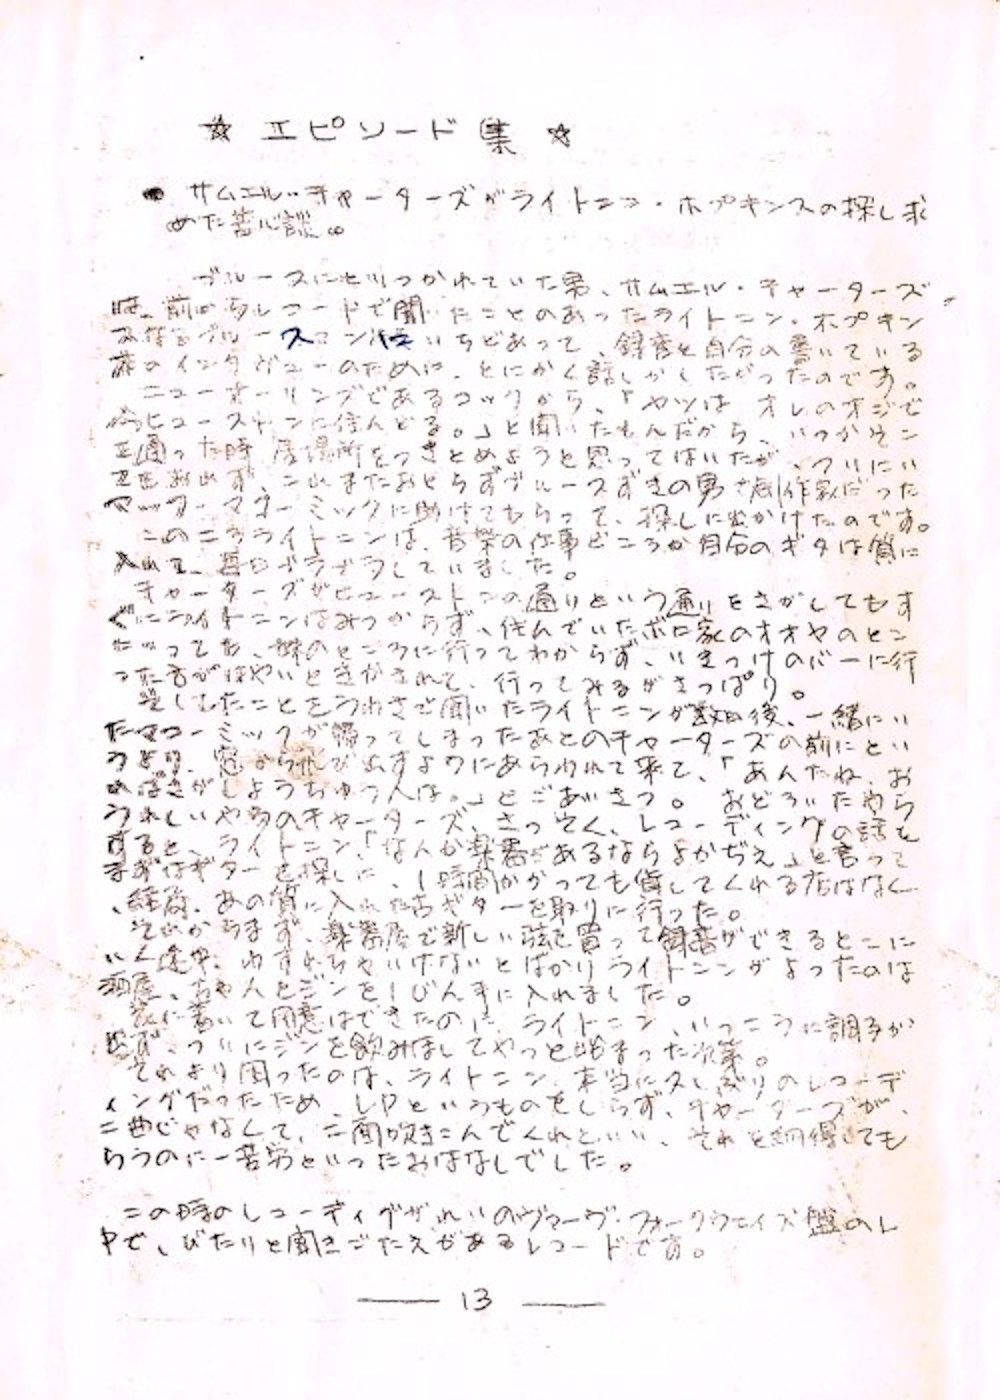 ☆ エピソード集 ☆
● サムエル・チャーターズがライトニン・ホプキンスの探し求
めた苦心談。
ブルースにとりつかれていた男、サムエル・チャーターズ。
前からレコードで聞いたことのあったライトニン・ホプキン
ブルースマンにいちどあって、録音と自分の書いている
のインタヴューのために、とにかく話しがしたがったのです。
ニューオーリンズであるコックから、「ヤツは オレのオジで
ヒューストンに住んどる。」と聞いたもんだから、いつかソン
を通った時 居場所をつきとめようと思ってはいたが、ついにい
おれず、これまたおとらずブルースずきの男で劇作家だった
マック・マコーミックに助けてもらって、探しに出かけたのです。
このころライトニンは、音楽の仕事どころか自分のギタは質に
入れて、毎日ブラブラしていました。
チャーターズがヒューストンの通りという通りをさがしてもす
ぐにライトニンはみつからず、住んでいたボロ家のオオヤのとこ
たってた、姉のところに行ってわからず、いきつけのバーに行
った方がはやいときかされて、行ってみるがさっぱり。
探してたことをうわさで聞いたライトニンが数日後、一緒にい
たマコーミックが帰ってしまったあとのチャーターズの前にとい
うより、窓から飛び出すようにあらわれて来て、「あんたね、お
ればさがしようちゅう人は。」とごあいさつ。 おどろいたやら
うれしいやらのチャーターズ、さっそく、レコーディングの話を
すると、ライトニン「なんか楽器があるならよかぢぇ」と言って
まずはギターを探しに、1時間かかっても貸してくれる店はなく
、結局、あの質に入れた古ギターを取りに行った。
それからまず、楽器屋で新しい弦を買って録音ができるとこに
いく途中、わすれちゃいけないとばかりライトニンがよったのは
酒屋、ちゃんとジンを1びん手に入れました。
家に着いて用意はできたのに、ライトニン、いっこうに調子が
出ず、ついにジンを飲みほしてやっと始まった次第。
それより困ったのは、ライトニン、本当に久しぶりのレコーデ
ィングだったため、LPというものをしらず、チャーターズが、
二曲じゃなくて、二面吹きこんでくれといい、それを納得しても
らうのに一苦労といったおはなしでした。
この時のレコーディグがれいのヴァーヴ・フォークウェイズ盤のL
Pで、ぴたりと聞きごたえがあるレコードです。
— 13 —